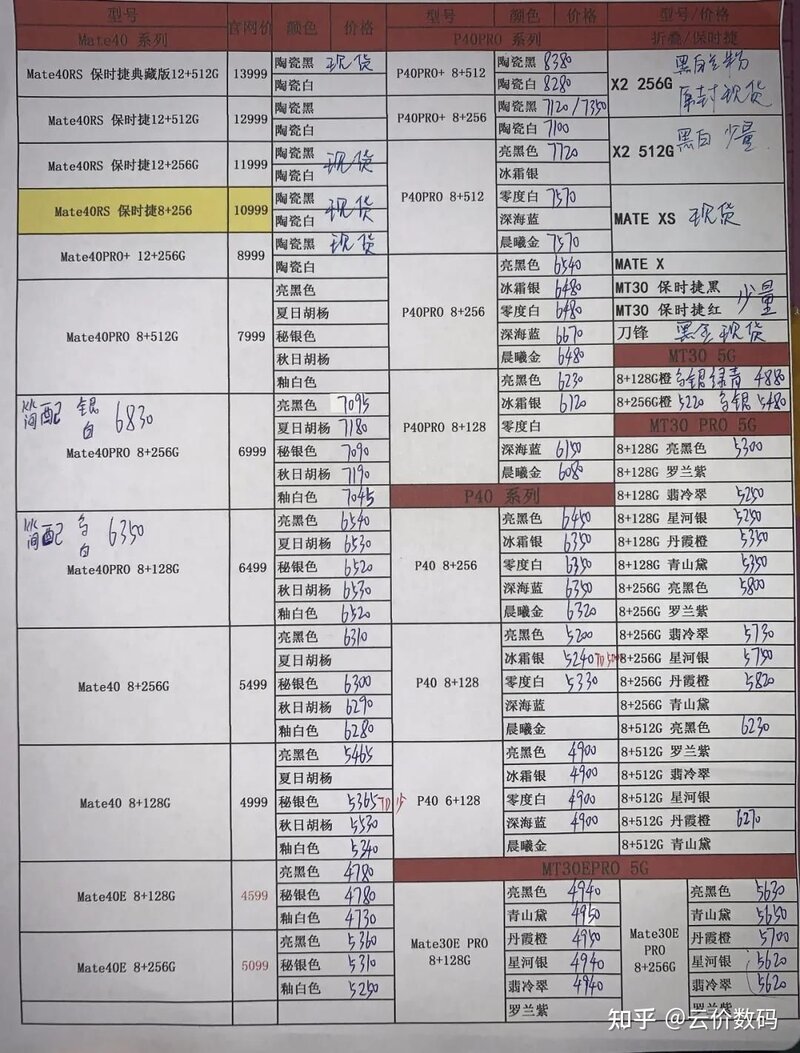 型号 官网价 颜色 价格
Mate40 系列
Mate40RS 保时捷典藏版12+512G 13999 陶瓷黑 现货
陶瓷白
Mate40RS 保时捷12+512G 12999 陶瓷黑
陶瓷白
Mate40RS 保时捷12+256G 11999 陶瓷黑
陶瓷白 现货
Mate40RS 保时捷8+256 10999 陶瓷黑 现货
陶瓷白
Mate40PRO+ 12+256G 8999 陶瓷黑 现货
陶瓷白
Mate40PRO 8+512G 7999 亮黑色
夏日胡杨
秘银色
秋日胡杨
釉白色
简配 银 白 6830
Mate40PRO 8+256G 6999 亮黑色 7095
夏日胡杨 7180
秘银色 7090
秋日胡杨 7190
釉白色 7045
简配 白 6350
Mate40PRO 8+128G 6499 亮黑色 6540
夏日胡杨 6530
秘银色 6520
秋日胡杨 6530
釉白色 6520
Mate40 8+256G 5499 亮黑色 6310
夏日胡杨
秘银色 6300
秋日胡杨 6290
釉白色 6280
Mate40 8+128G 4999 亮黑色 5465
夏日胡杨
秘银色 5365 少
秋日胡杨 5530
釉白色 5340
Mate40E 8+128G 4599 亮黑色 4780
秘银色 4780
釉白色 4730
Mate40E 8+256G 5099 亮黑色 5360
秘银色 5310
釉白色 5250
型号 颜色 价格
P40PRO 系列
P40PRO+ 8+512 陶瓷黑 8380
陶瓷白 8280
P40PRO+ 8+256 陶瓷黑 7120/7350
陶瓷白 7100
P40PRO 8+512 亮黑色 7720
冰霜银
零度白 7570
深海蓝
晨曦金 7570
P40PRO 8+256 亮黑色 6540
冰霜银 6480
零度白 6480
深海蓝 6670
晨曦金 6480
P40PRO 8+128 亮黑色 6230
冰霜银 6120
零度白
深海蓝 6150
晨曦金 6080
P40 系列
P40 8+256 亮黑色 6450
冰霜银 6350
零度白 6350
深海蓝 6350
晨曦金 6320
P40 8+128 亮黑色 5200
冰霜银 5240
零度白 5330
深海蓝
晨曦金
P40 6+128 亮黑色 4900
冰霜银 4900
零度白 4900
深海蓝 4900
晨曦金
型号/价格
折叠/保时捷
X2 256G 黑白兰粉
原封现货
X2 512G 黑白 少量
MATE XS 现货
MATE X
MT30 保时捷黑 少量
MT30 保时捷红
刀锋 黑金现货
MT30 5G
8+128G橙 银绿青 4880
8+256G橙 5220 银 5480
MT30 PRO 5G
8+128G 亮黑色 5300
8+128G 罗兰紫
8+128G 翡冷翠 5250
8+128G 星河银 5250
8+128G 丹霞橙 5350
8+128G 青山黛 5350
8+256G 亮黑色 5800
8+256G 罗兰紫
8+256G 翡冷翠 5730
8+256G 星河银 5750
8+256G 丹霞橙 5820
8+256G 青山黛
8+512G 亮黑色 6230
8+512G 罗兰紫
8+512G 翡冷翠
8+512G 星河银
8+512G 丹霞橙 6270
8+512G 青山黛
MT30EPRO 5G
Mate30E PRO 8+128G 亮黑色 4940
青山黛 4950
丹霞橙 4950
星河银 4940
翡冷翠 4940
罗兰紫
Mate30E PRO 8+256G 亮黑色 5630
青山黛 5650
丹霞橙 5700
星河银 5620
翡冷翠 5620
罗兰紫
知乎 @云价数码